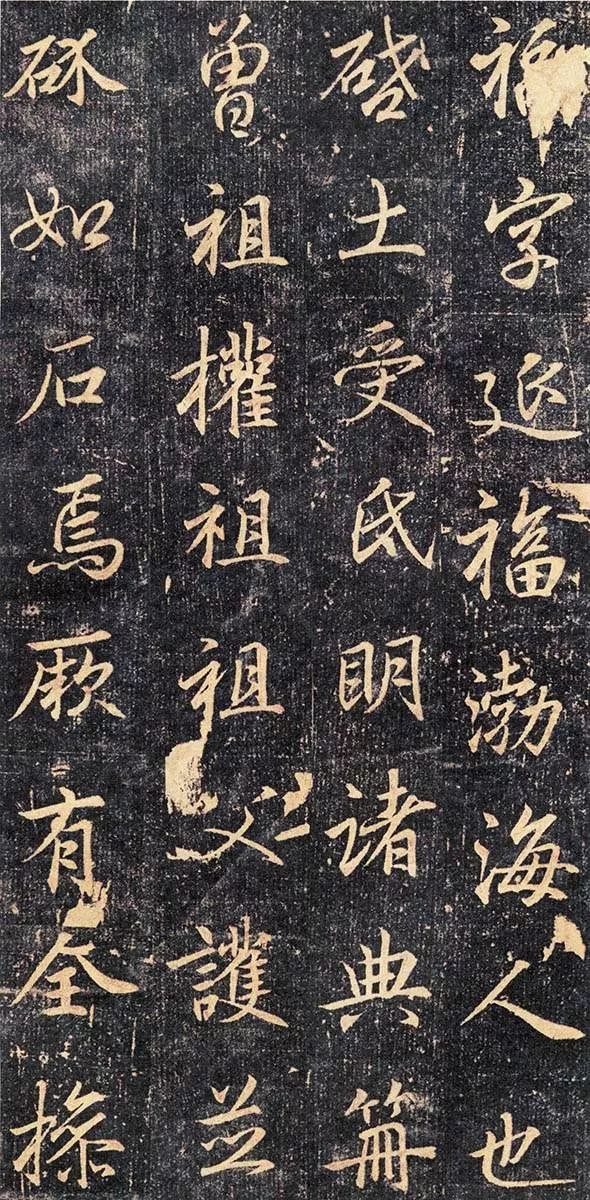 福字延福渤海人也
啓土受氏眀諸典笧
曾祖權祖祖父護並
砎如石焉厥有全操